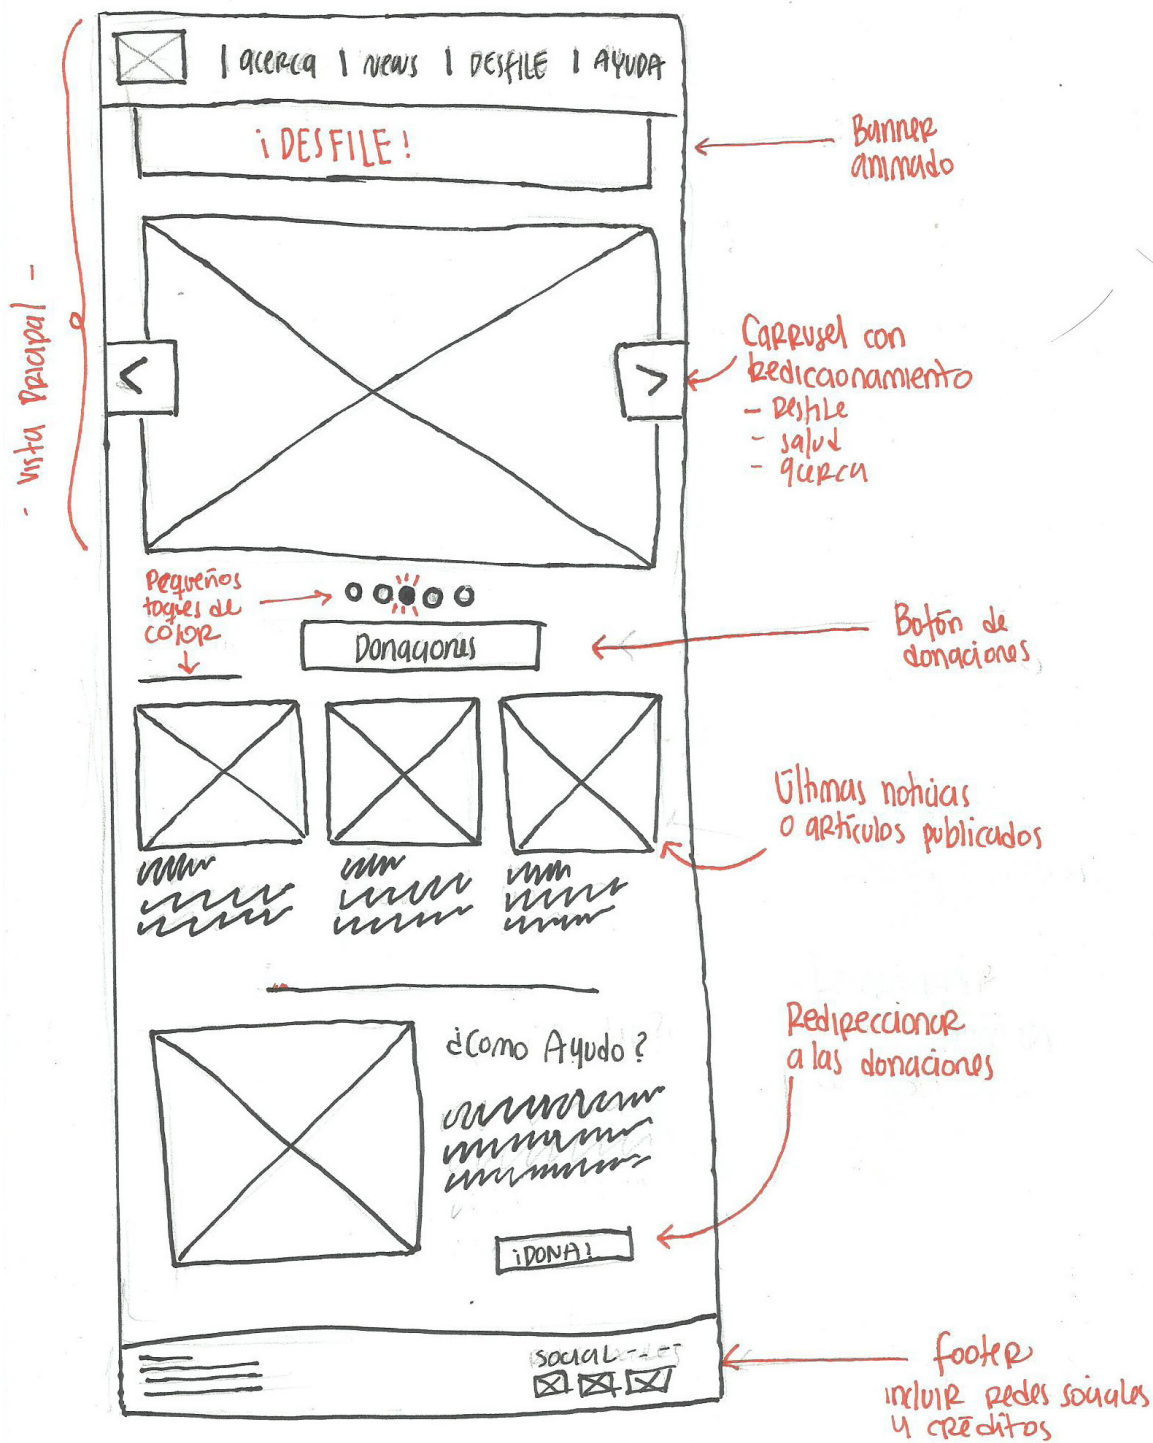 | acerca | NEWS | DESFILE | AYUDA
¡DESFILE!
Banner
animado
- Vista Pricipal -
<
>
Carrusel con
Rediccionamiento
- Desfile
- salud
- acerca
Pequeños
toques de
color
Donaciones
Botón de
donaciones
Últimas noticias
o artículos publicados
¿Como Ayudo?
Redireccionar
a las donaciones
¡DONA!
social
footer
incluir redes sociales
y créditos